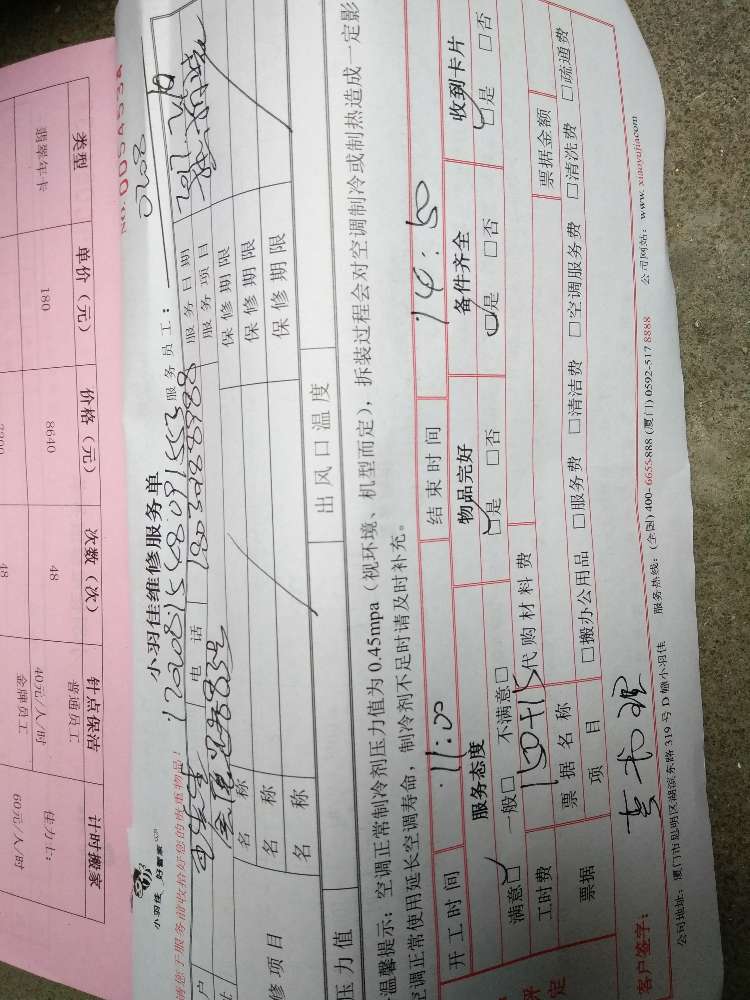 小羽佳 好管家.com
小羽佳维修服务单
No: 0054534
请您于服务前收拾好您的贵重物品!
17081548091553
服务员工:
0708
户
电 话
18039858988
服务日期
服务项目
修项目
名 称
保修期限
名 称
保修期限
名 称
保修期限
压力值
出风口温度
温馨提示: 空调正常制冷剂压力值为 0.45mpa(视环境、机型而定), 拆装过程会对空调制冷或制热造成一定影
空调正常使用延长空调寿命, 制冷剂不足时请及时补充。
开工时间
11:00
结束时间
14:50
服务态度
物品完好
备件齐全
收到卡片
满意□ 一般□ 不满意□
□是 □否
□是 □否
□是 □否
工时费
150+15
代购材料费
票据
票据名称
票据金额
项 目
□搬办公用品 □服务费 □清洁费 □空调服务费 □清洗费 □疏通费
客户签字:
公司地址: 厦门市思明区湖滨东路 319 号 D 幢小羽佳
服务热线: (全国) 400-6655-888 (厦门) 0592-517 8888
公司网站: www. xiaoyujia.com
类型
单价(元)
价格(元)
次数(次)
钟点保洁
计时搬家
翡翠年卡
180
8640
48
普通员工
40元/人/时
金牌员工
佳力士:
60元/人/时
48